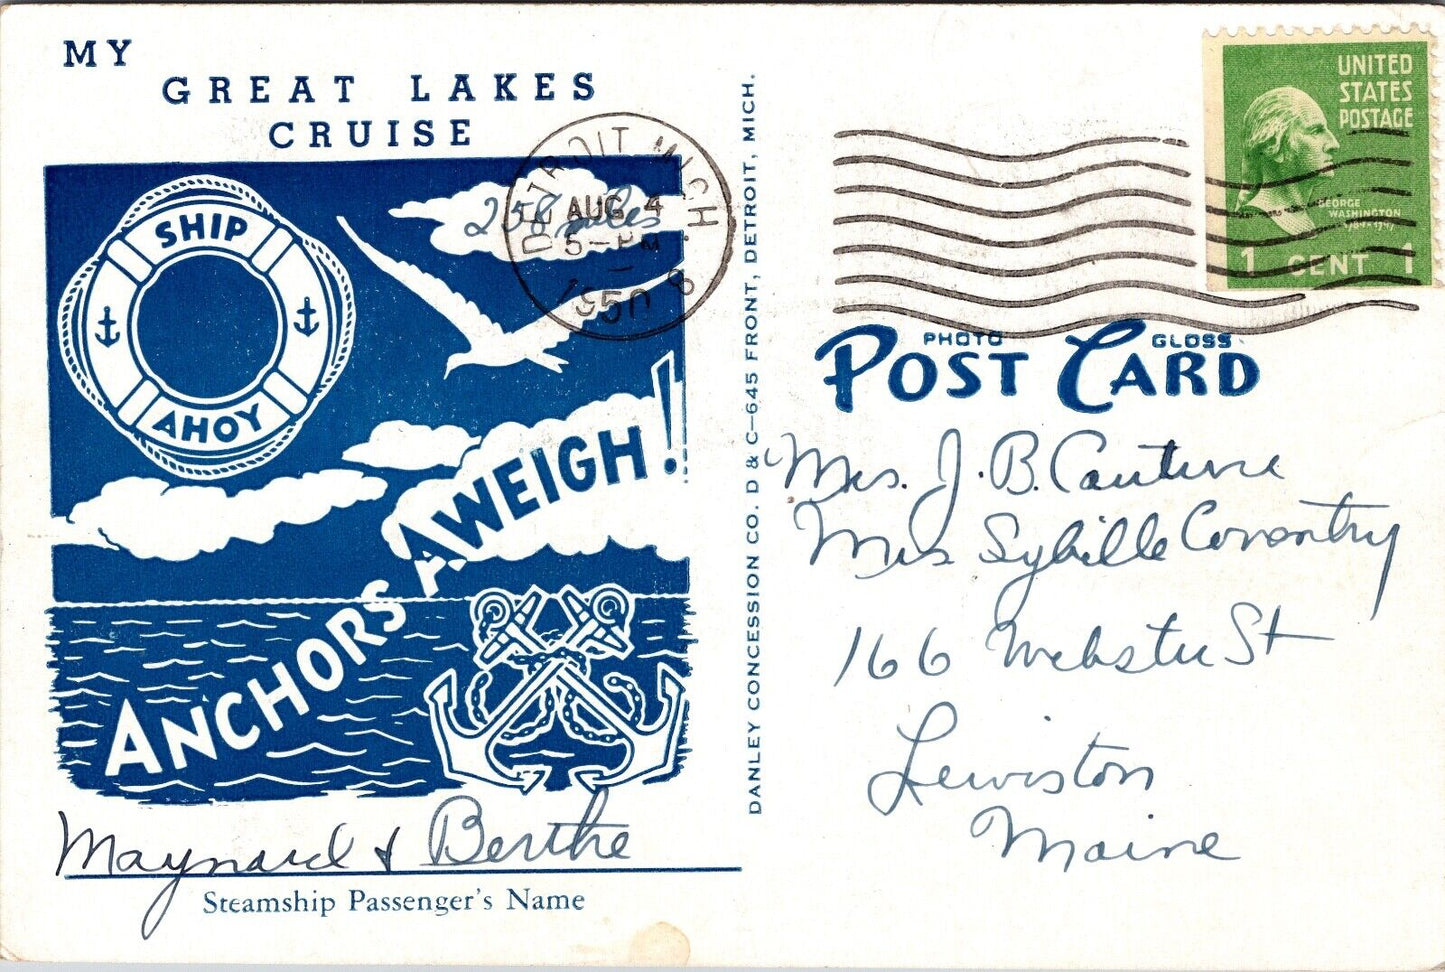 MY
GREAT LAKES
CRUISE
SHIP
AHOY
258 miles
ANCHORS AWEIGH!
Maynard & Berthe
Steamship Passenger's Name
DANLEY CONCESSION CO. D & C—645 FRONT, DETROIT, MICH.
DETROIT MICH.
AUG 4
5-PM
1950
8
UNITED
STATES
POSTAGE
GEORGE
WASHINGTON
1789-1797
1 CENT 1
PHOTO GLOSS
POST CARD
Mrs. J. B. Couture
Mrs Sybille Coventry
166 Webster St
Lewiston
Maine